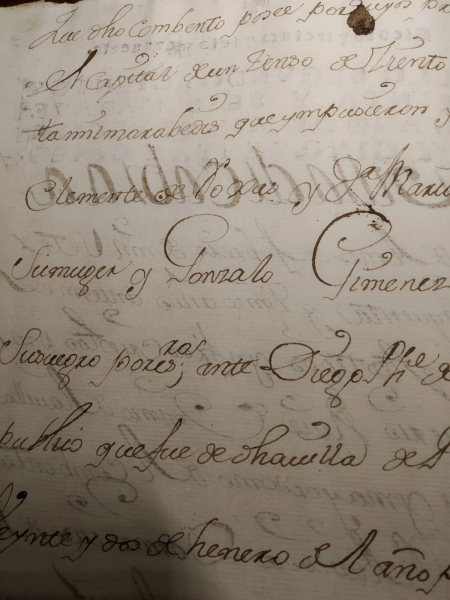 Que dho Combento posee por cuyos
El Capital de un Zenso de Trento
ta mil marabedis que ympusieron y
Clemente de Rodas y Dª Maria
Su muger y Gonzalo Gimenez
Su suegro por esras; ante Diego Phe de
publico que fue de dha villa de
Veynte y dos de henero de l año